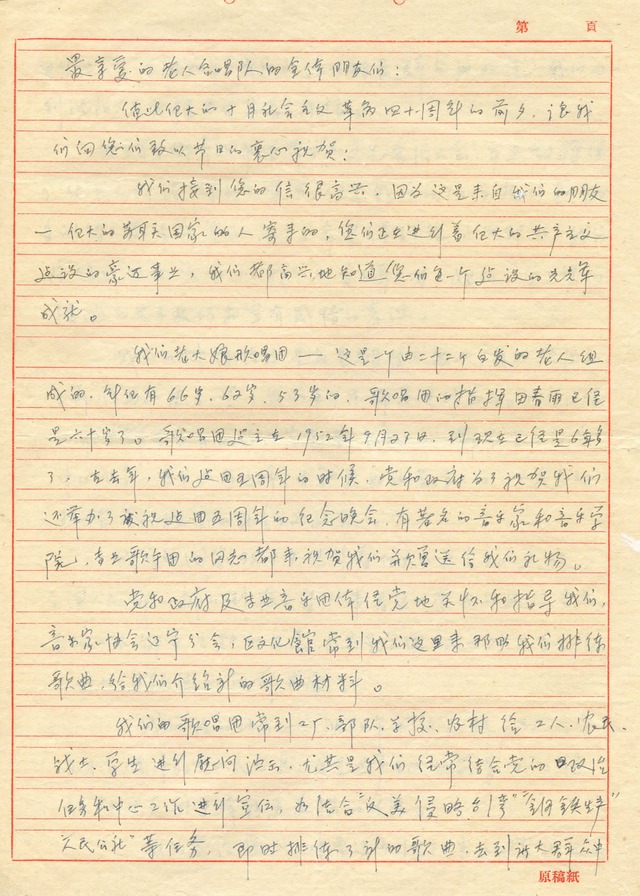 第 頁
最亲爱的老人合唱队的全体朋友们：
值此伟大的十月社会主义革命四十周年的前夕，让我
们向您们致以节日的衷心祝贺！
我们接到您的信很高兴，因为这是来自我们的朋友
— 伟大的苏联国家的人寄来的，您们正在进行着伟大的共产主义
建设的豪迈事业，我们都高兴地知道您们每一个建设的光辉
成就。
我们老大娘歌唱团 — 这是一个由二十二个白发的老人组
成的，有66岁、62岁、53岁的，歌唱团的指挥田春雨已经
是六十岁了。歌唱团建立在1952年9月27日，到现在已经是6年多
了，在去年，我们建团五周年的时候，党和政府为了祝贺我们
还举办了庆祝建团五周年的纪念晚会，有著名的音乐家和音乐学
院，专业歌午团的同志都来祝贺我们并赠送给我们礼物。
党和政府及专业音乐团体经常地关怀和指导我们，
音乐家协会辽宁分会，区文化館常到我们这里来帮助我们排练
歌曲，给我们介绍新的歌曲材料。
我们的歌唱团常到工厂、部队、学校、农村给工人、农民、
战士、学生进行慰问演出，尤其是我们经常结合党的政治
任务和中心工作进行宣传，如结合"反美侵略台湾""全民鋼鉄生产"
"人民公社"等任务，即时排练了新的歌曲，去到广大群众中
原稿紙